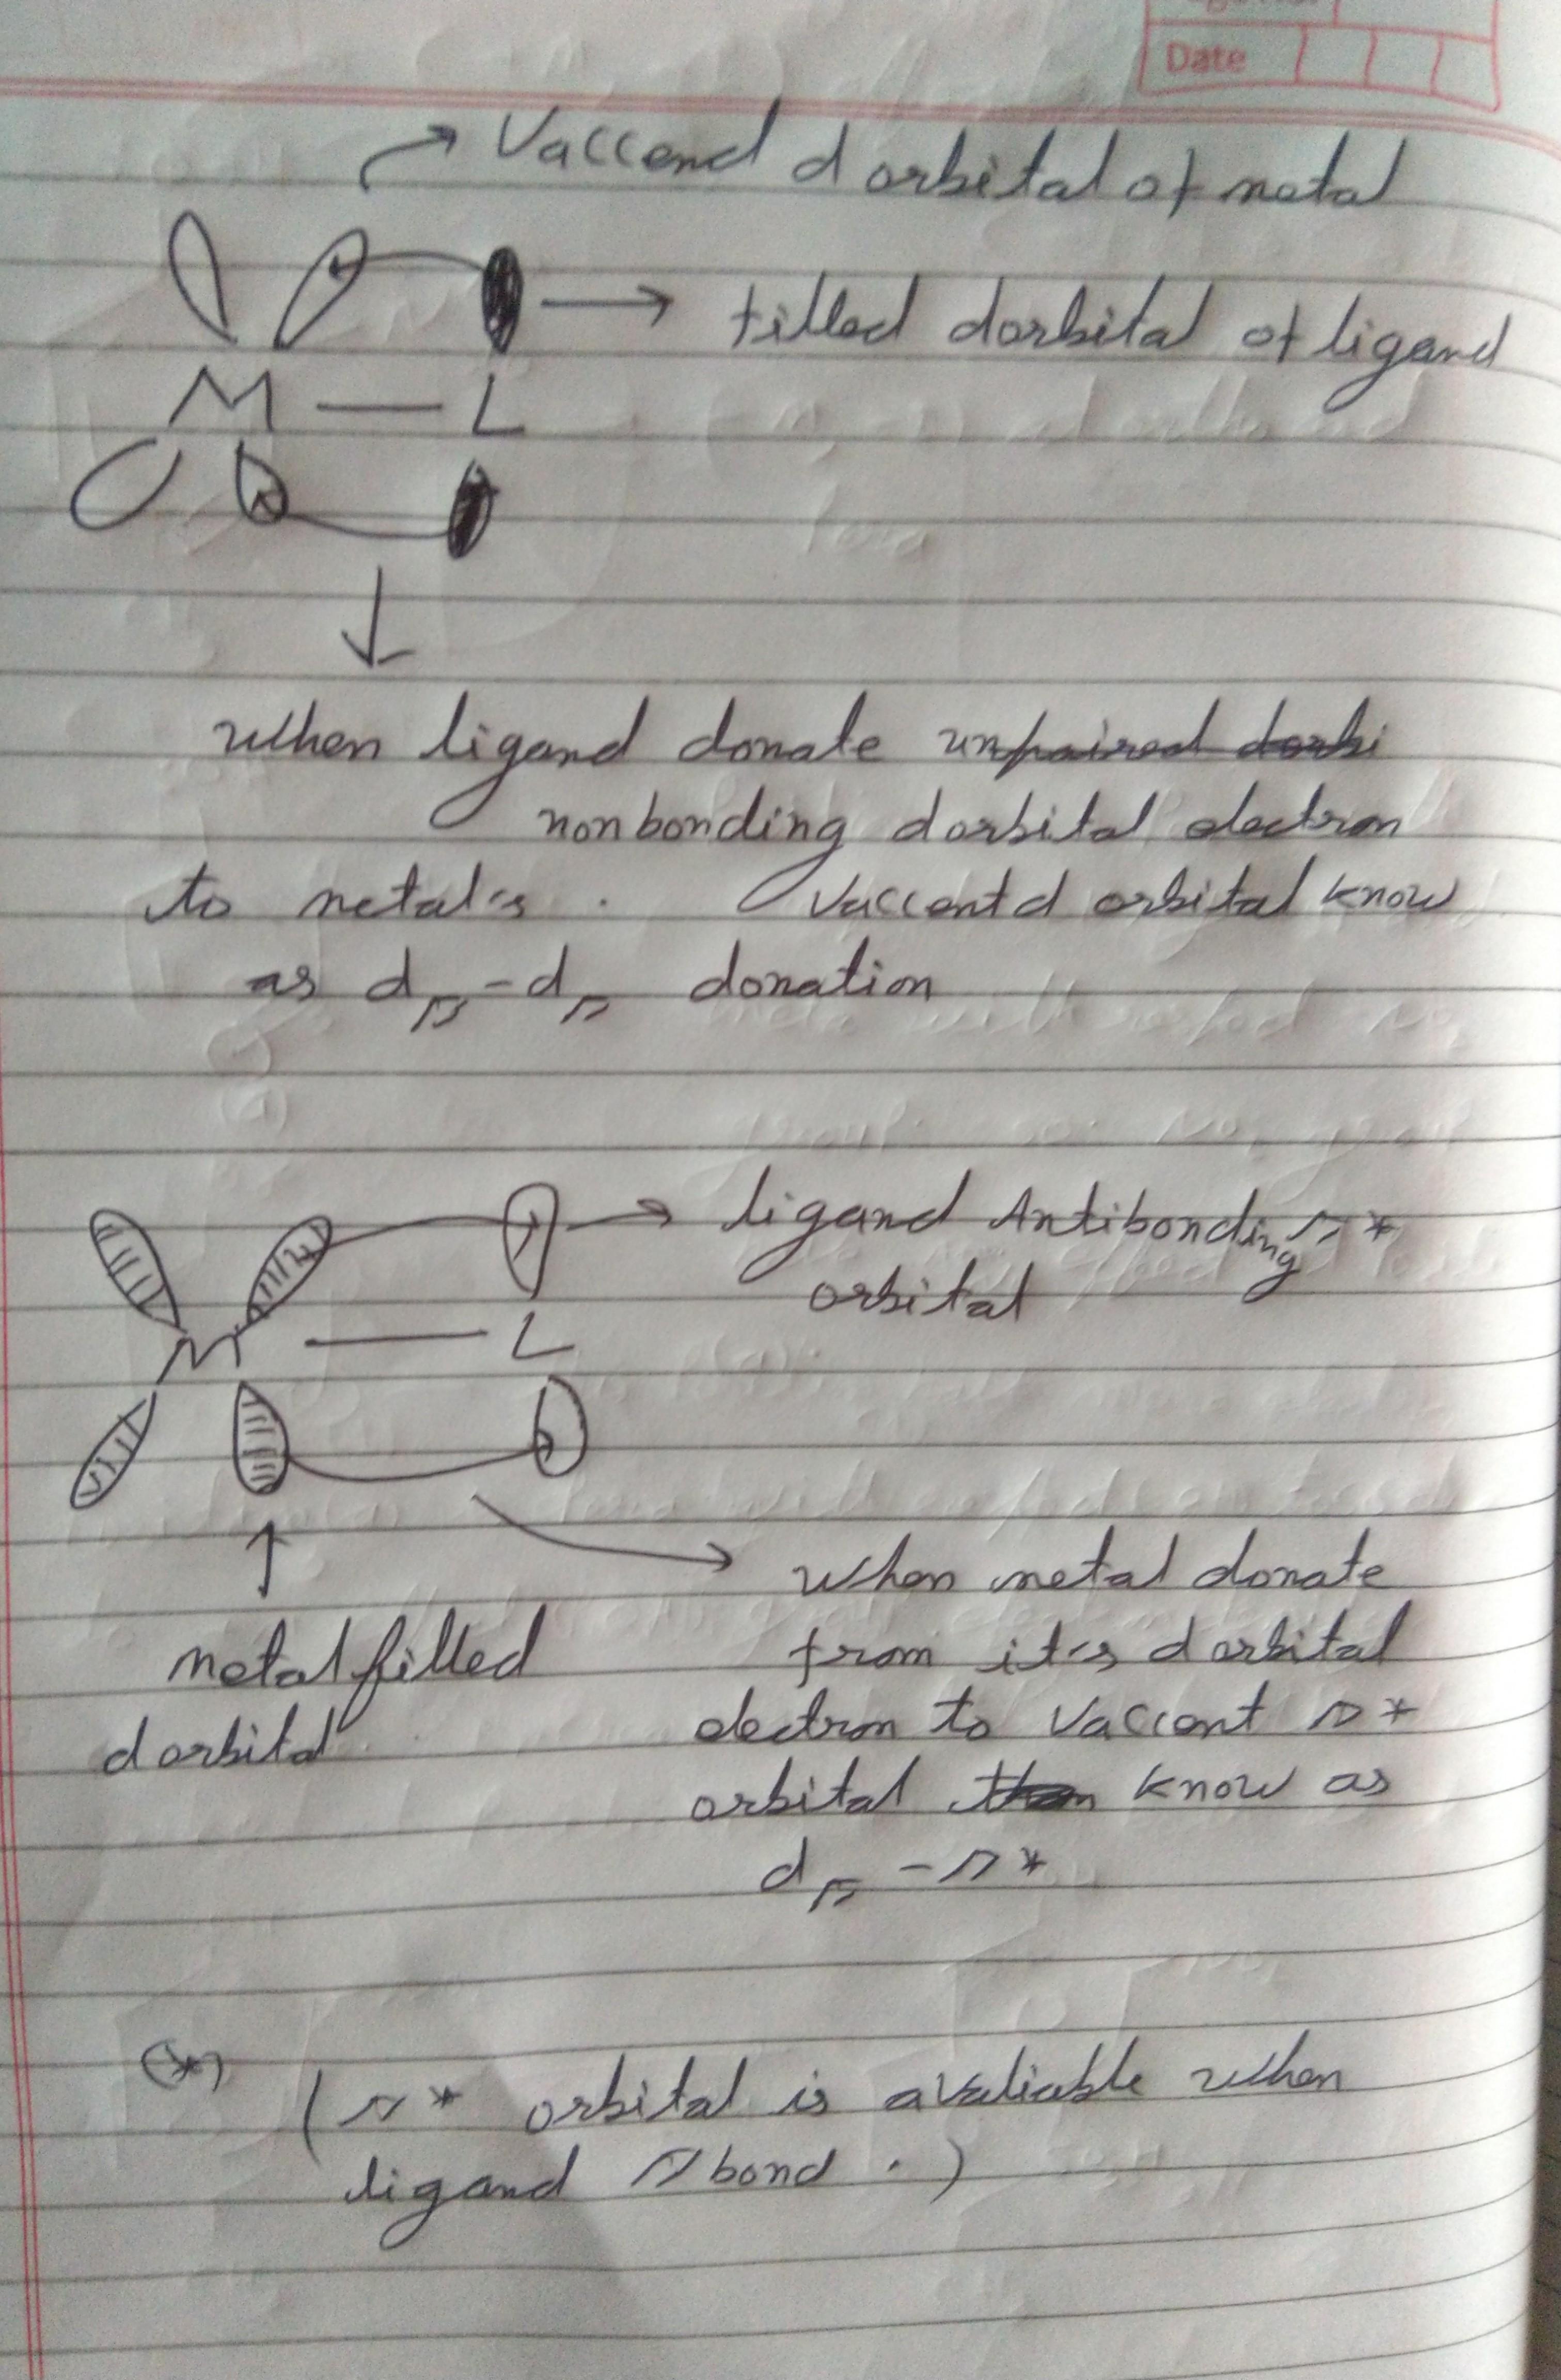 Date
Vaccend d orbital of metal
filled dorbital of ligand
M — L
when ligand donate unpaired dorbi
nonbonding dorbital electron
to metal's . Vaccentd orbital know
as dπ-dπ donation
ligand Antibonding π*
orbital
M — L
when metal donate
metal filled from it's dorbital
dorbital electron to Vaccent π*
orbital than know as
dπ - π*
(*)
(π* orbital is avaliable when
ligand π bond . )